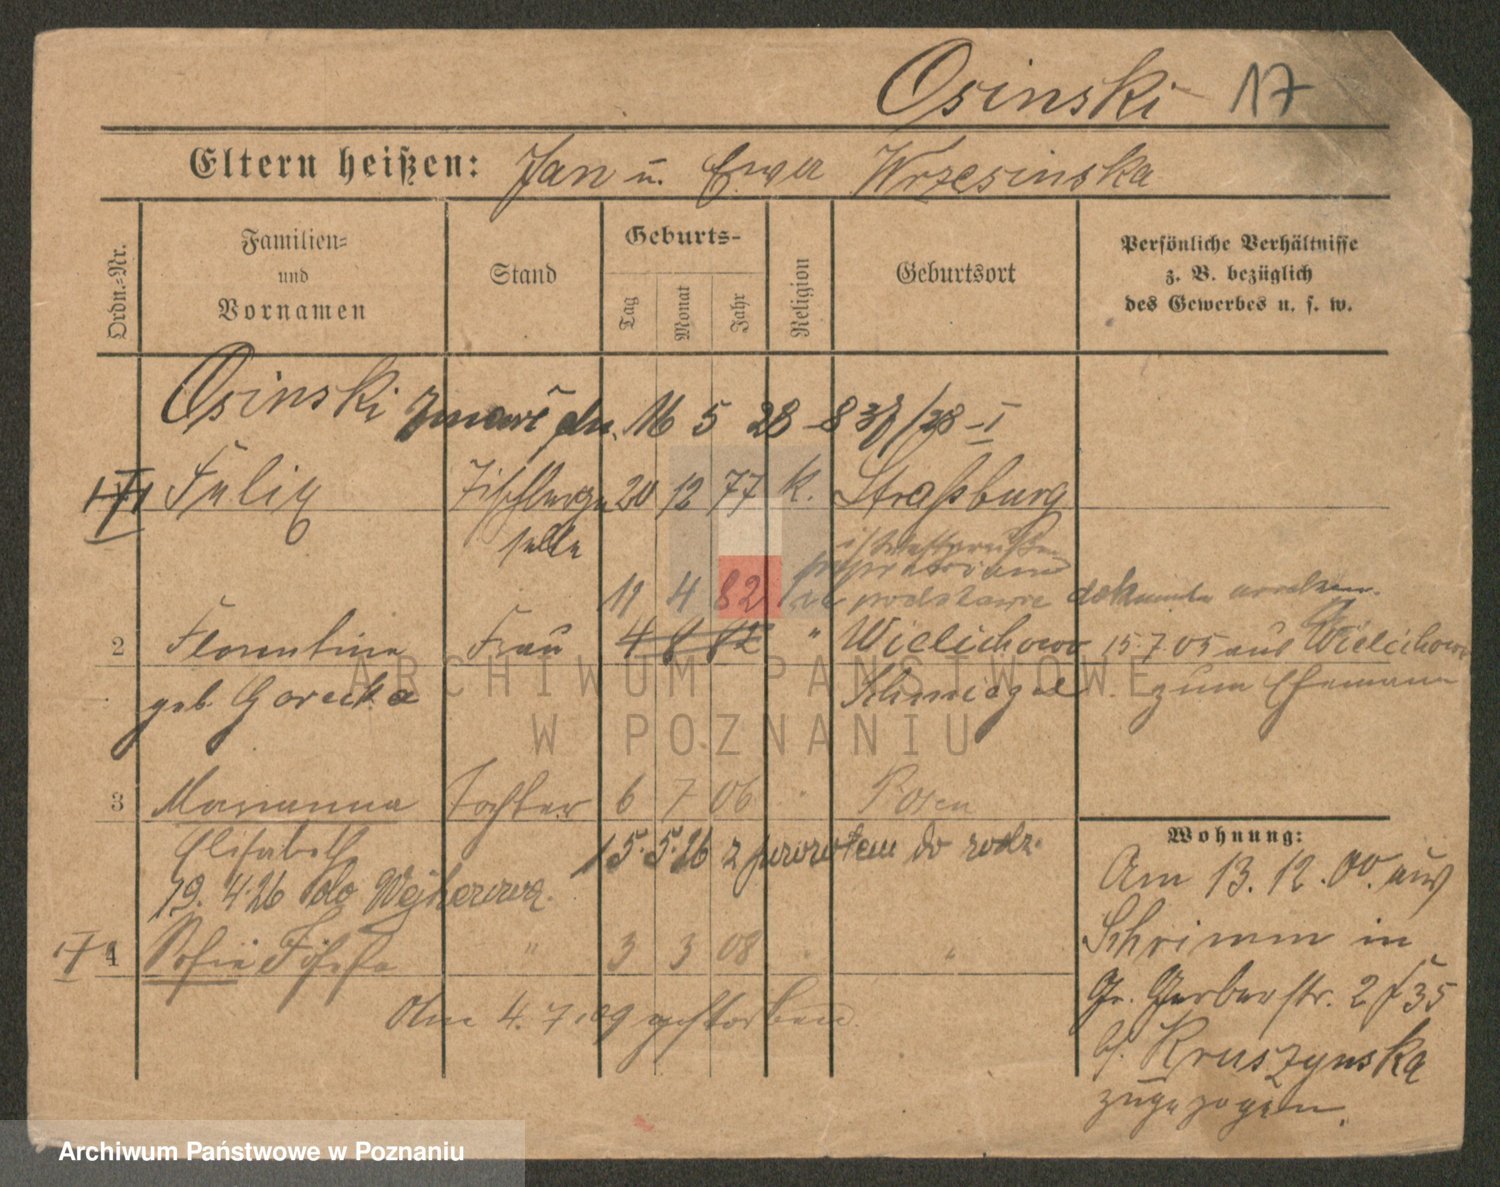 Osinski 17
Eltern heißen: Jan u. Ewa Wrzesinska
Ordn.-Nr.
Familien-
und
Vornamen
Stand
Geburts-
Tag
Monat
Jahr
Religion
Geburtsort
Persönliche Verhältnisse
z. B. bezüglich
des Gewerbes u. s. w.
Osinski zmarł dn. 16 5 28 - 8 37/28 - I
Felix Tischlerge 20 12 77 k. Straßburg
selle
i/Westpreußen
poprawiono
11 4 82 na podstawie dokumentu
2 Florentine Frau 4 8 82 " Wielichowo 15.7.05 aus Wielichowo
geb. Gorecka Schmiegel zum Ehemann
3 Marianna Tochter 6 7 06 " Posen
Elisabeth 15.5.26 z powrotem do rodz.
19.4.26 do Wejherowa.
4 Sofie " 3 3 08 " "
Am 4.7.09 gestorben
Wohnung:
Am 13.12.00. aus
Schrimm in
Gr. Gerberstr. 35
b. Kruszynska
zugezogen.
ARCHIWUM PAŃSTWOWE
W POZNANIU
Archiwum Państwowe w Poznaniu